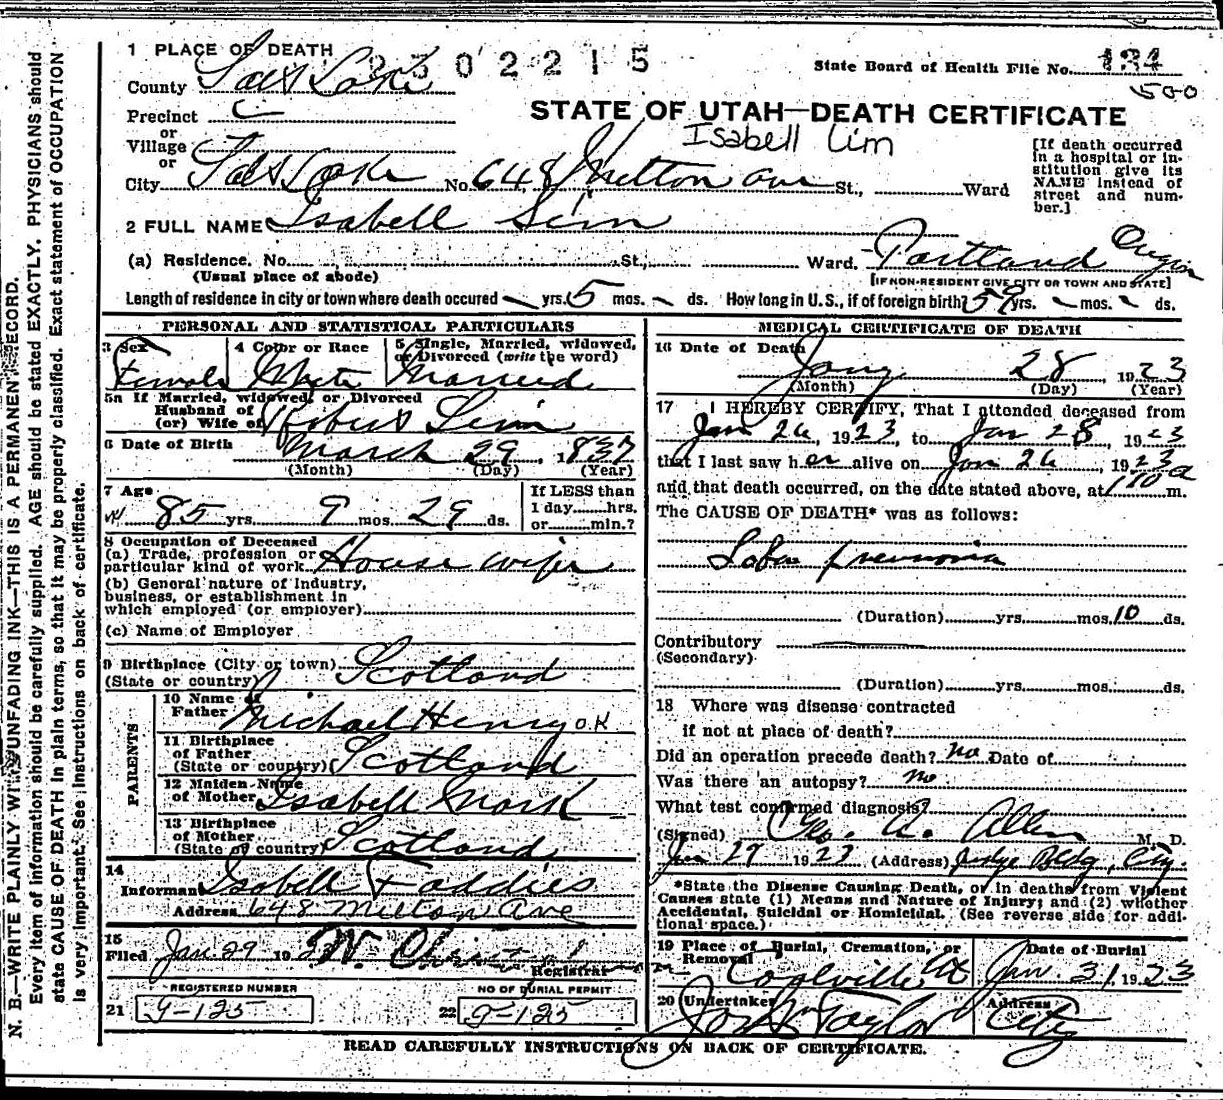 1 PLACE OF DEATH
2302215
State Board of Health File No. 134
500
County Salt Lake
Precinct
or
Village
or
STATE OF UTAH—DEATH CERTIFICATE
Isabell Lim
City Salt Lake No. 648 Milton Ave St., Ward
[If death occurred in a hospital or institution give its NAME instead of street and number.]
2 FULL NAME Isabell Sim
(a) Residence. No. St., Ward. Portland Oregon
(Usual place of abode)
[IF NON-RESIDENT GIVE CITY OR TOWN AND STATE]
Length of residence in city or town where death occured yrs. 5 mos. ds. How long in U.S., if of foreign birth? 59 yrs. mos. ds.
PERSONAL AND STATISTICAL PARTICULARS
3 Sex
Female
4 Color or Race
White
5 Single, Married, widowed, or Divorced (write the word)
Married
5a If Married, widowed, or Divorced
Husband of
(or) Wife of Robert Sim
6 Date of Birth March 29, 1837
(Month) (Day) (Year)
7 Age
85 yrs. 9 mos. 29 ds.
If LESS than
1 day hrs.
or min.?
8 Occupation of Deceased
(a) Trade, profession or
particular kind of work House wife
(b) General nature of Industry,
business, or establishment in
which employed (or employer)
(c) Name of Employer
9 Birthplace (City or town) Scotland
(State or country)
PARENTS
10 Name of
Father Michael Henry O.K
11 Birthplace
of Father
(State or country) Scotland
12 Maiden Name
of Mother Isabell Mark
13 Birthplace
of Mother
(State or country) Scotland
14
Informant Isabell Faddies
Address 648 Milton Ave
15
Filed Jan. 29 1923
Registrar
REGISTERED NUMBER
21 g-125
NO OF BURIAL PERMIT
22 g-125
MEDICAL CERTIFICATE OF DEATH
16 Date of Death
Jany 28, 1923
(Month) (Day) (Year)
17 I HEREBY CERTIFY, That I attended deceased from
Jan 26, 1923, to Jan 28, 1923
that I last saw her alive on Jan 26, 1923
and that death occurred, on the date stated above, at 110 a m.
The CAUSE OF DEATH* was as follows:
Lobar pneumonia
(Duration) yrs. mos. 10 ds.
Contributory
(Secondary)
(Duration) yrs. mos. ds.
18 Where was disease contracted
if not at place of death?
Did an operation precede death? no Date of
Was there an autopsy? no
What test confirmed diagnosis?
(Signed) Geo. A. Allen M. D.
Jan 29 1923 (Address) Judge Bldg, City.
*State the Disease Causing Death, or in deaths from Violent
Causes state (1) Means and Nature of Injury; and (2) whether
Accidental, Suicidal or Homicidal. (See reverse side for additional space.)
19 Place of Burial, Cremation, or
Removal
Coalville Ut
Date of Burial
Jan. 31, 1923
20 Undertaker
Taylor
Address
City
READ CAREFULLY INSTRUCTIONS ON BACK OF CERTIFICATE.
N. B.—WRITE PLAINLY WITH UNFADING INK—THIS IS A PERMANENT RECORD.
Every item of information should be carefully supplied. AGE should be stated EXACTLY. PHYSICIANS should
state CAUSE OF DEATH in plain terms, so that it may be properly classified. Exact statement of OCCUPATION
is very important. See instructions on back of certificate.